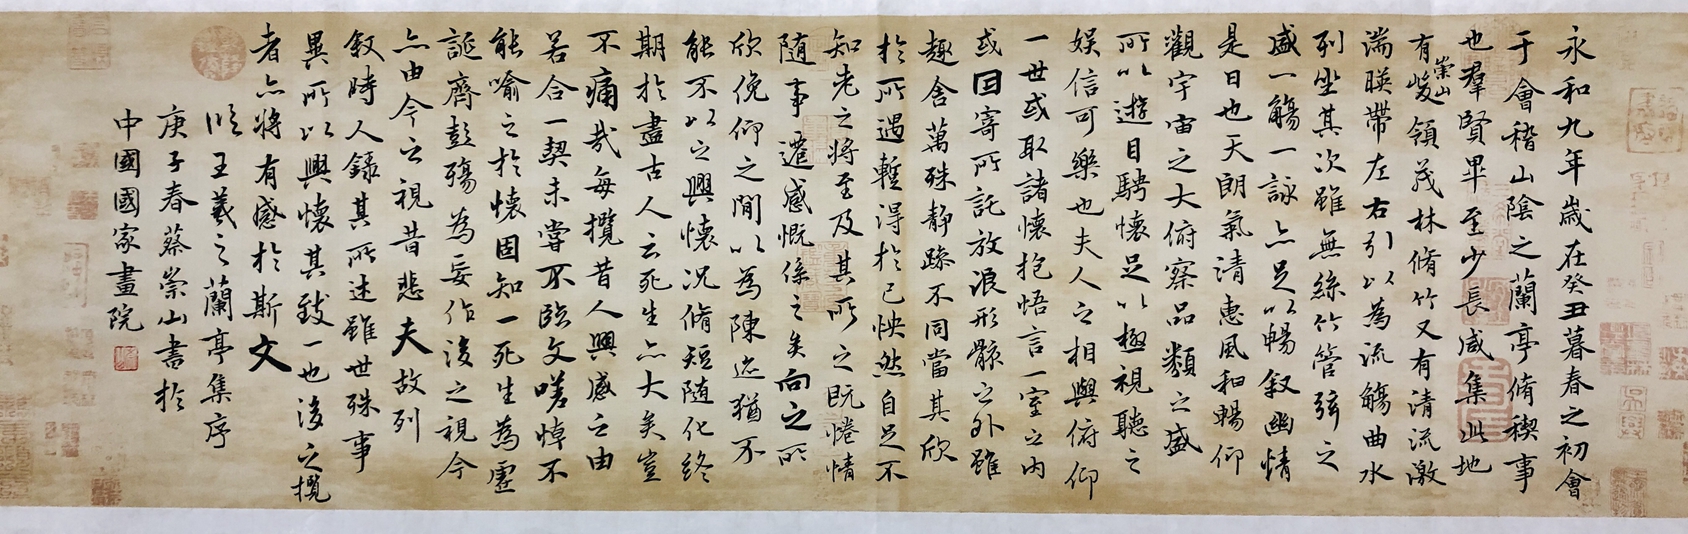 永和九年歲在癸丑暮春之初會
于會稽山陰之蘭亭脩稧事
也羣賢畢至少長咸集此地
有崇山峻領茂林脩竹又有清流激
湍暎帶左右引以為流觴曲水
列坐其次雖無絲竹管弦之
盛一觴一詠亦足以暢敘幽情
是日也天朗氣清惠風和暢仰
觀宇宙之大俯察品類之盛
所以遊目騁懷足以極視聽之
娛信可樂也夫人之相與俯仰
一世或取諸懷抱悟言一室之內
或因寄所託放浪形骸之外雖
趣舍萬殊靜躁不同當其欣
於所遇暫得於己怏然自足不
知老之將至及其所之既惓情
隨事遷感慨係之矣向之所
欣俛仰之間以為陳迹猶不
能不以之興懷況脩短隨化終
期於盡古人云死生亦大矣豈
不痛哉每攬昔人興感之由
若合一契未嘗不臨文嗟悼不
能喻之於懷固知一死生為虛
誕齊彭殤為妄作後之視今
亦由今之視昔悲夫故列
敘時人錄其所述雖世殊事
異所以興懷其致一也後之攬
者亦將有感於斯文
臨王羲之蘭亭集序
庚子春蔡崇山書於
中國國家畫院